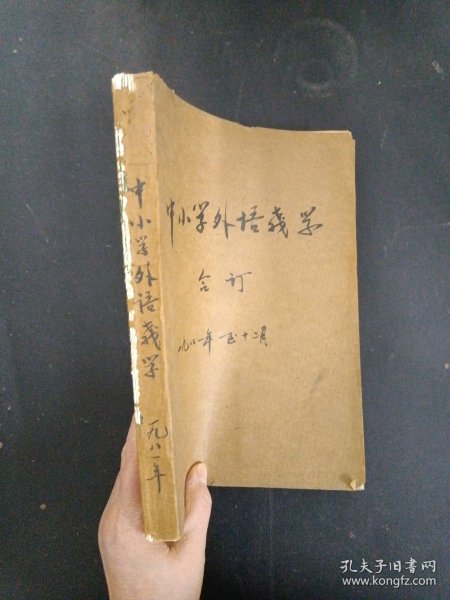 中小学外语教学
合订
一九八一年 一至十二月
中小学外语教学
一九八一年
孔夫子旧书网
www.kongfz.com